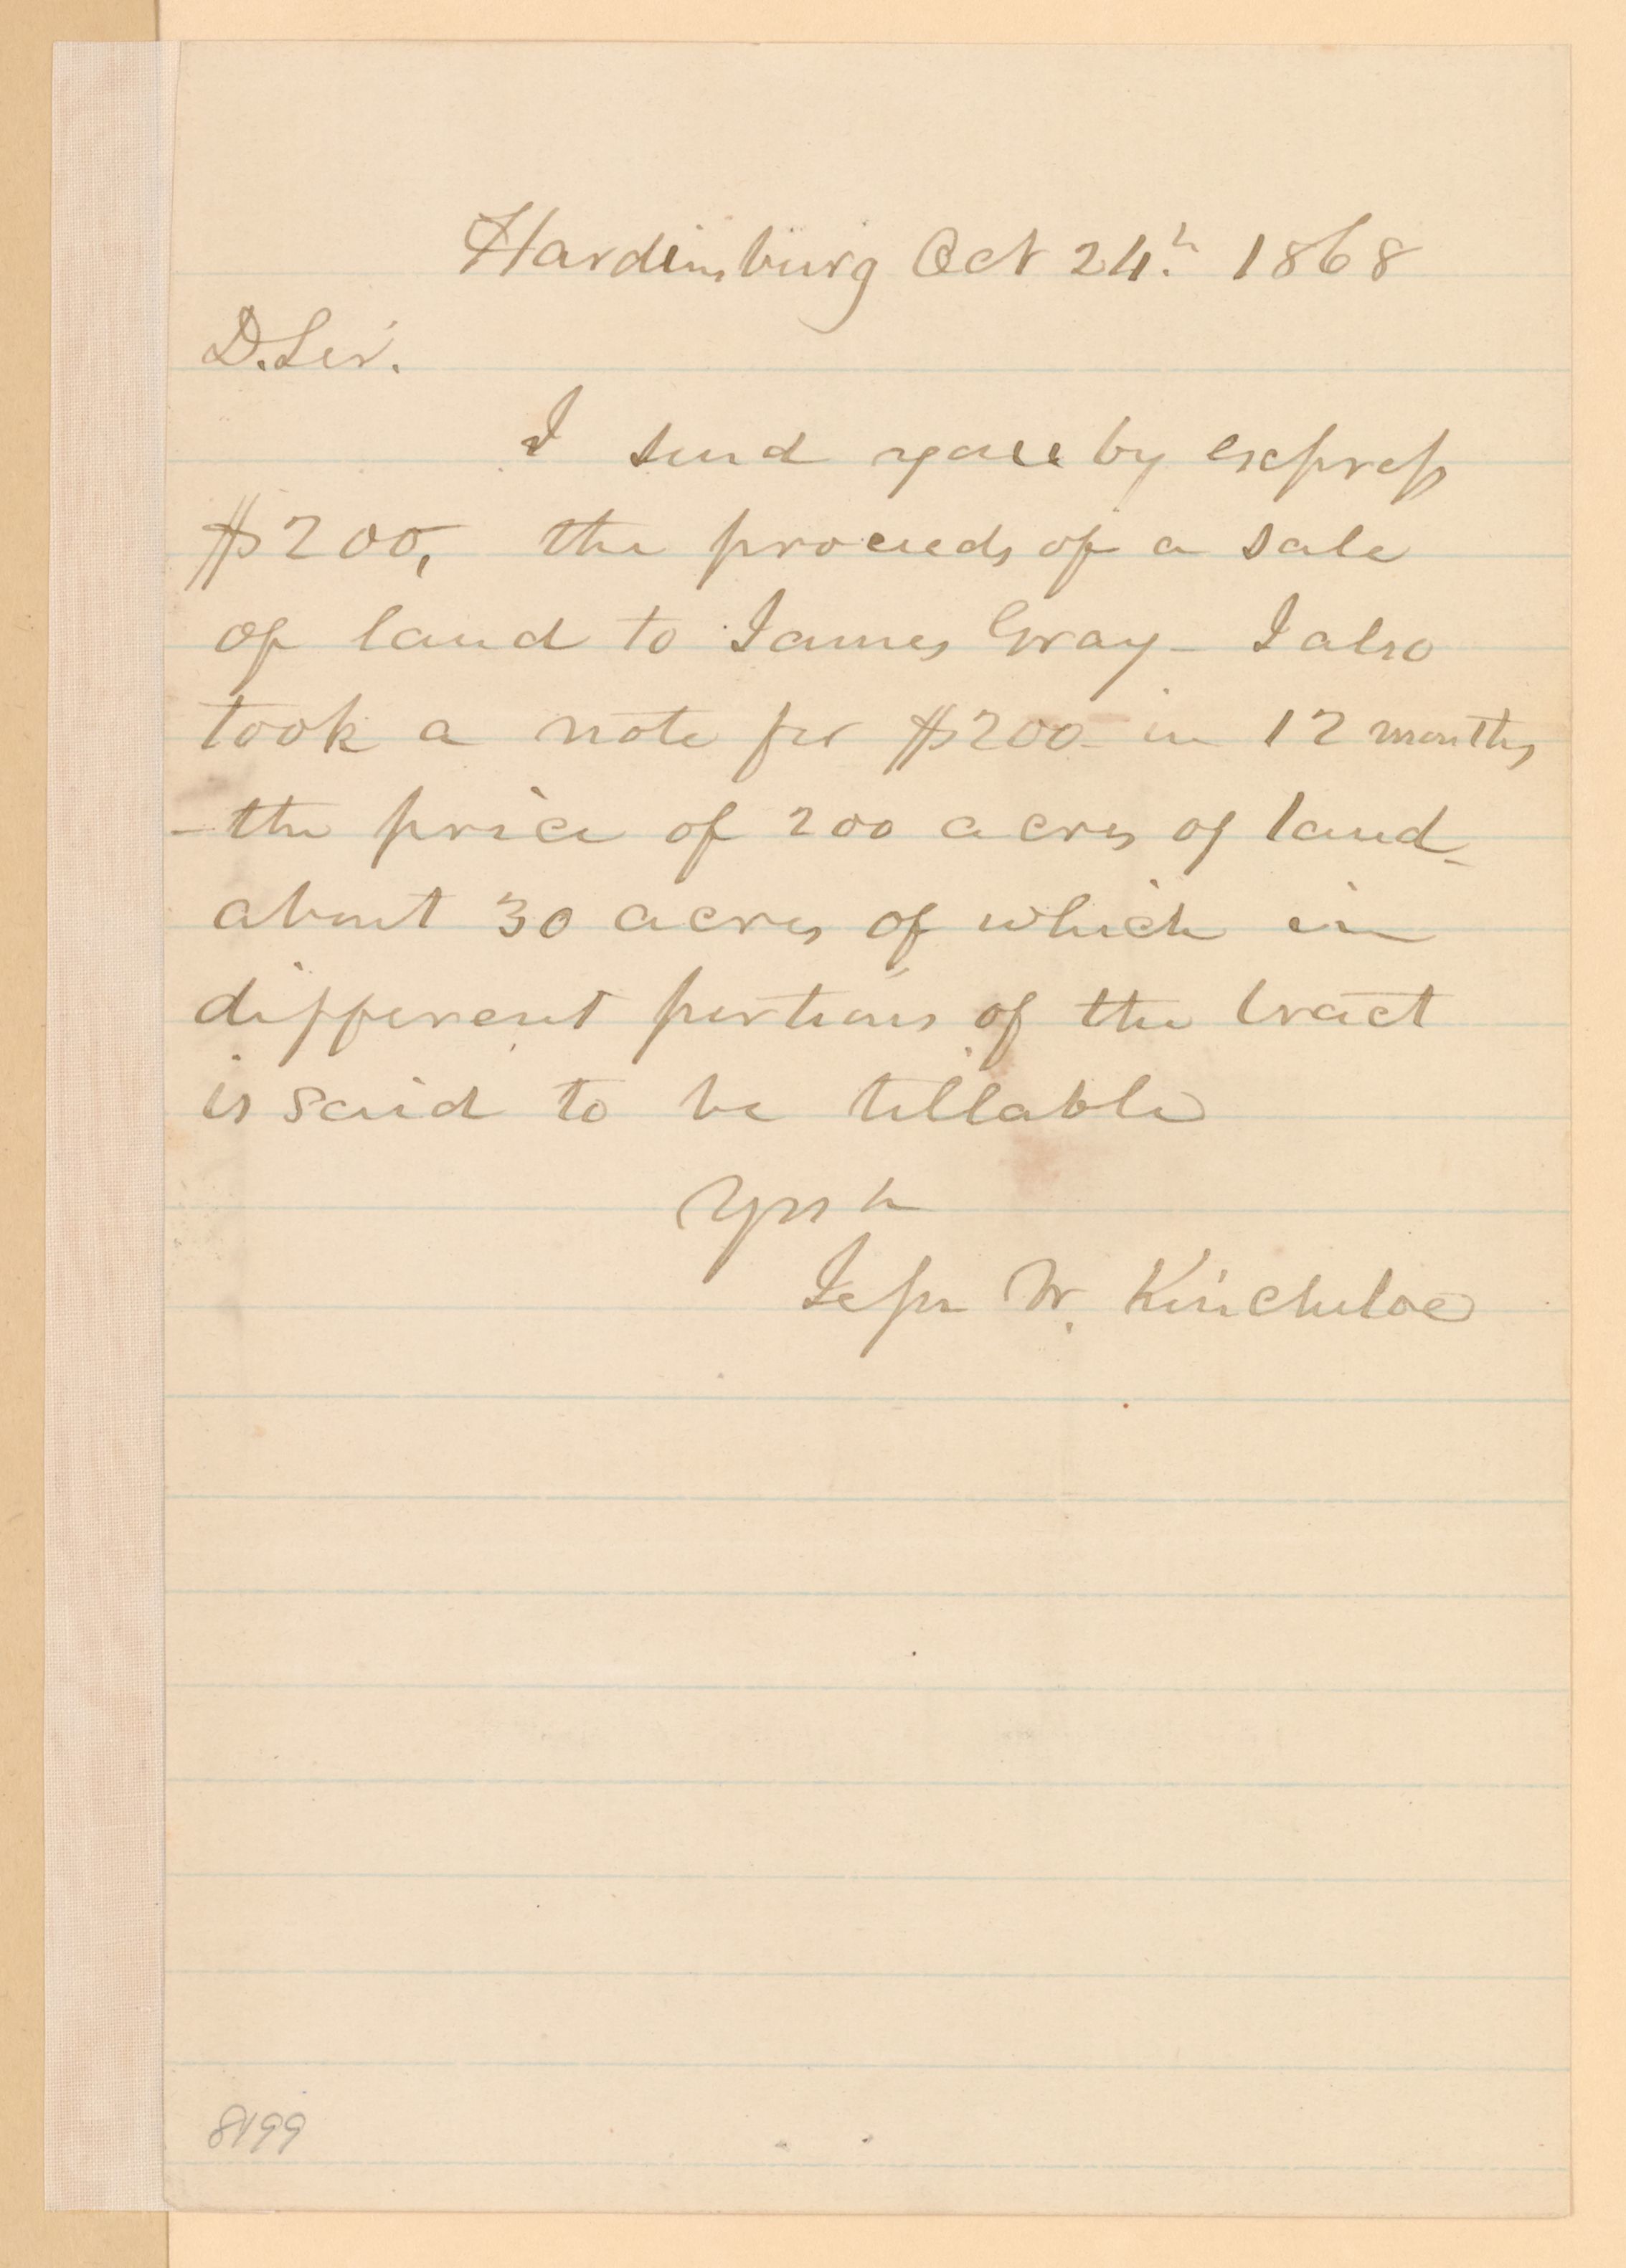 Hardinsburg Oct 24th 1868
D. Sir.
I send you by express
$200, the proceeds of a sale
of land to James Gray - I also
took a note for $200 - in 12 months
- the price of 200 acres of land -
about 30 acres of which in
different portions of the tract
is said to be tillable
Yrs &c
Jesse W. Kincheloe
8199